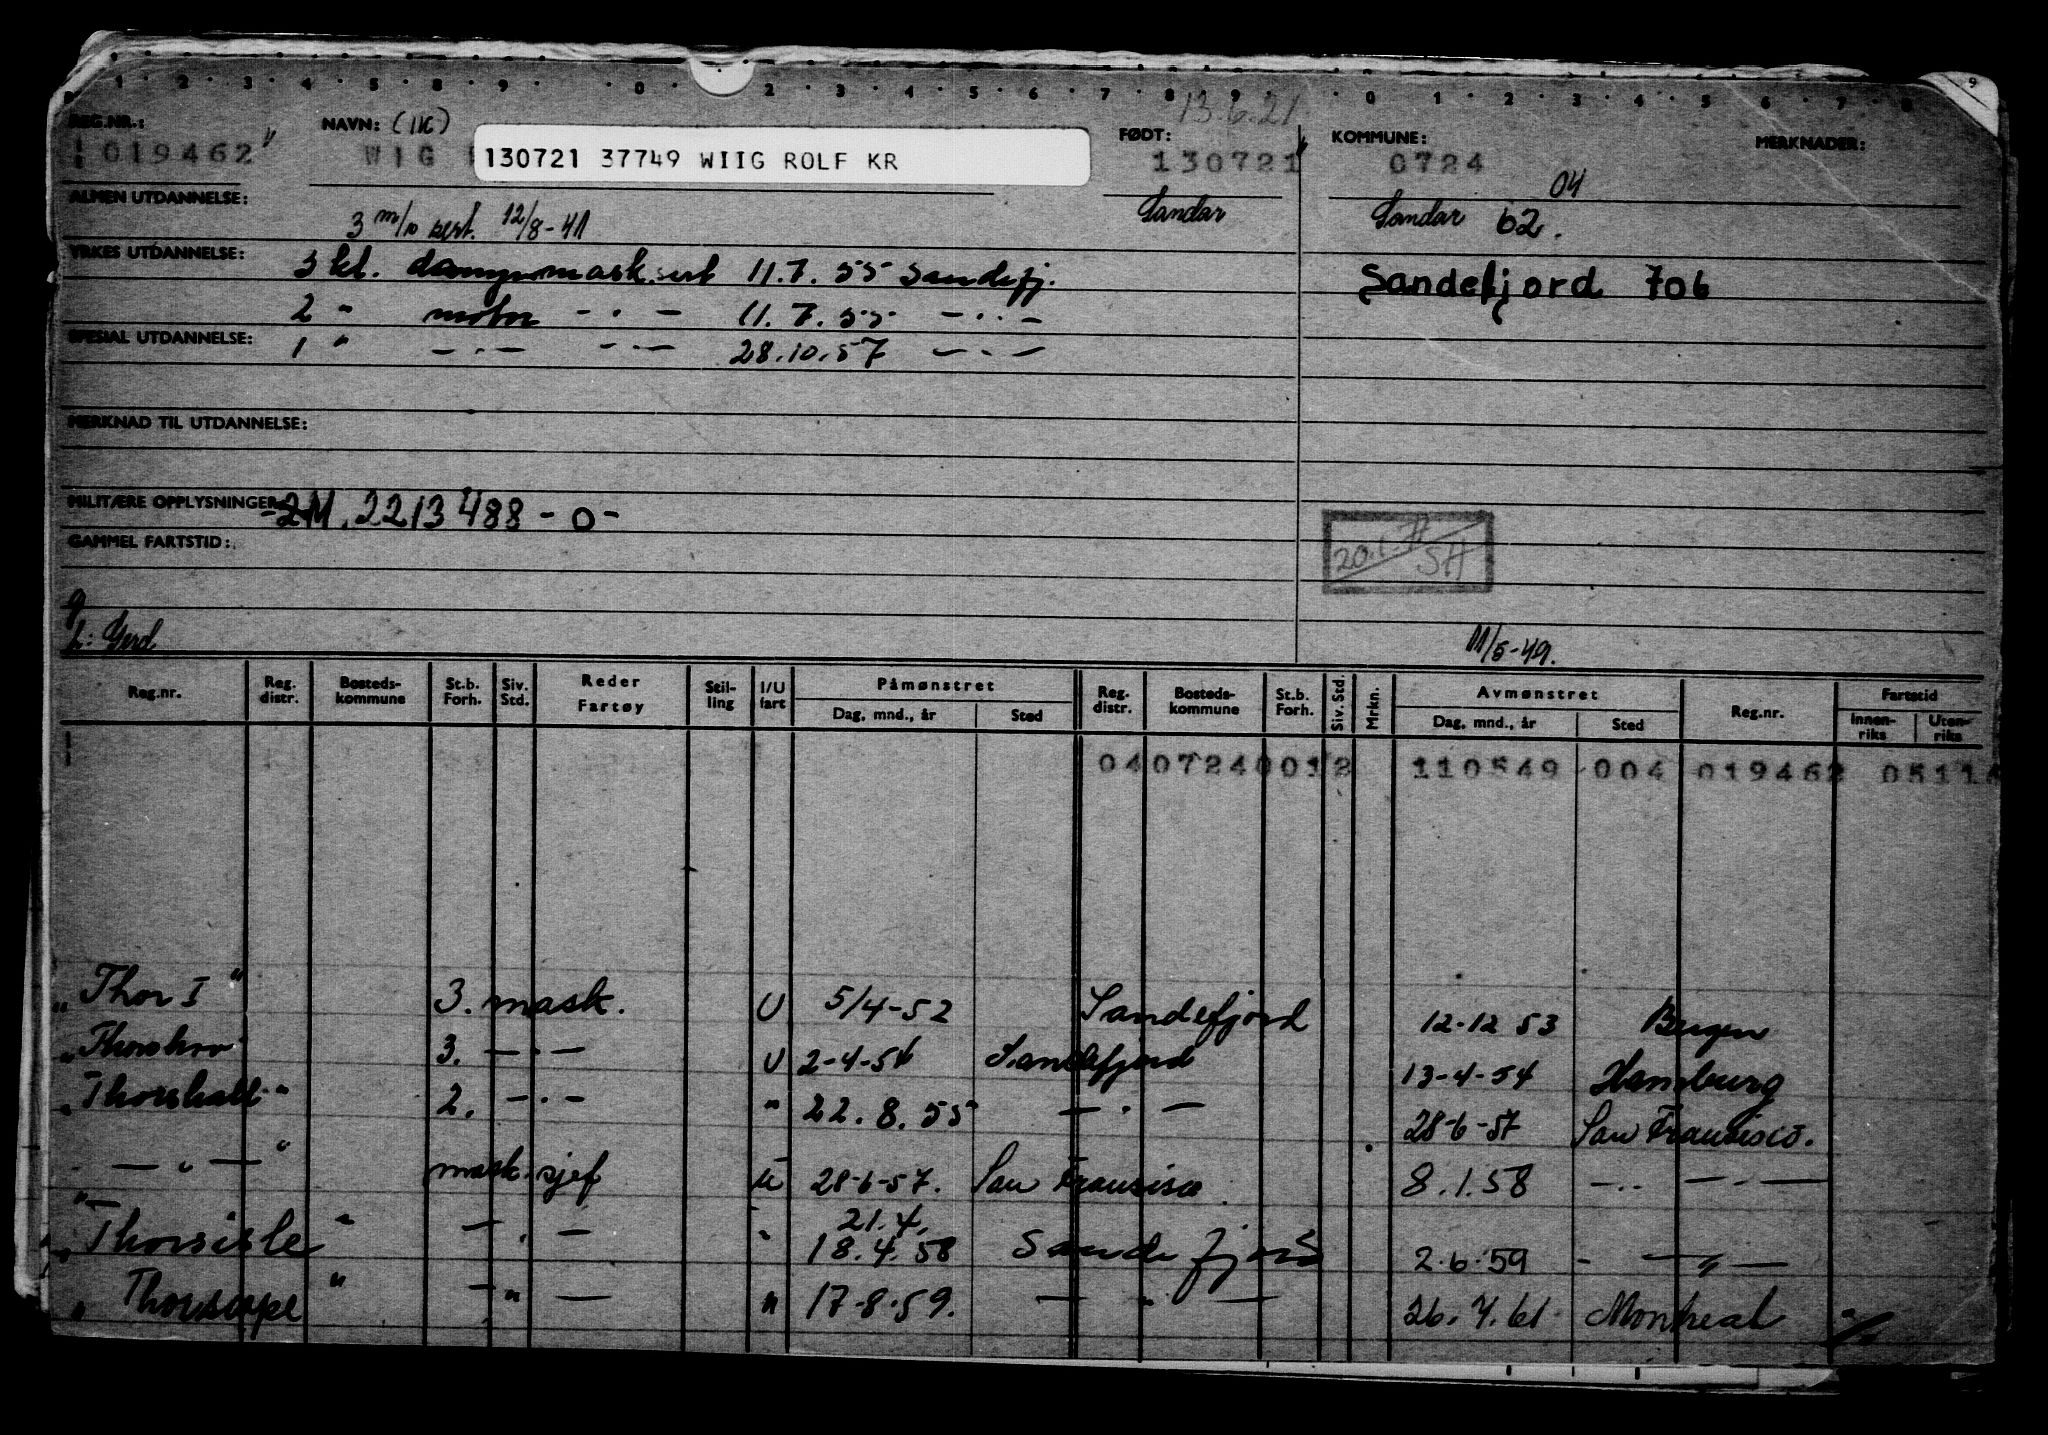 1 2 3 4 5 8 9 0 2 3 4 5 6 7 8 9 0 1 2 3 4 5 6 7 8
9
13.6.21
REG.NR.: NAVN: (IIG) FØDT: KOMMUNE: MERKNADER:
019462" WIG 130721 37749 WIIG ROLF KR 130721 0724
ALMEN UTDANNELSE: Sandar Sandar 62. 04
3 m/o sert. 12/8-41
YRKES UTDANNELSE: 3 kl. dampmask.sert 11.7.55 Sandefj. Sandefjord 706
2 " motor - . - 11.7.55 - . . -
SPESIAL UTDANNELSE: 1 " - . - - . - 28.10.57 - . -
MERKNAD TIL UTDANNELSE:
MILITÆRE OPPLYSNINGER 2M. 2213488 - o -
GAMMEL FARTSTID: 20.1.77 SH
g
h: Gerd 11/5-49.
Reg.nr. Reg. distr. Bosteds-kommune St.b. Forh. Siv. Std. Reder Fartøy Stil-ling I/U fart Påmønstret Dag, mnd., år Sted Reg. distr. Bosteds-kommune St.b. Forh. Siv. Std. Mrkn. Avmønstret Dag, mnd., år Sted Reg.nr. Fartstid Innen-riks Uten-riks
0407240012 110549 004 019462 0511
"Thor I" 3. mask. U 5/4-52 Sandefjord 12-12 53 Bergen
"Thorshov" 3. - . - U 2-4-54 Sandefjord 13-4-54 Hamburg
"Thorshall" 2. - . - " 22.8.55 - . - 28-6-57 San Fransisco.
" - " - " mask.sjef U 28-6-57. San Fransisco 8.1.58 - . . - . -
"Thorsisle" - . - " 21.4. 18.4.58 Sandefjord 2.6.59 - - " -
"Thorscape" - " - " 17-8-59. - " - 26.4.61 Montreal